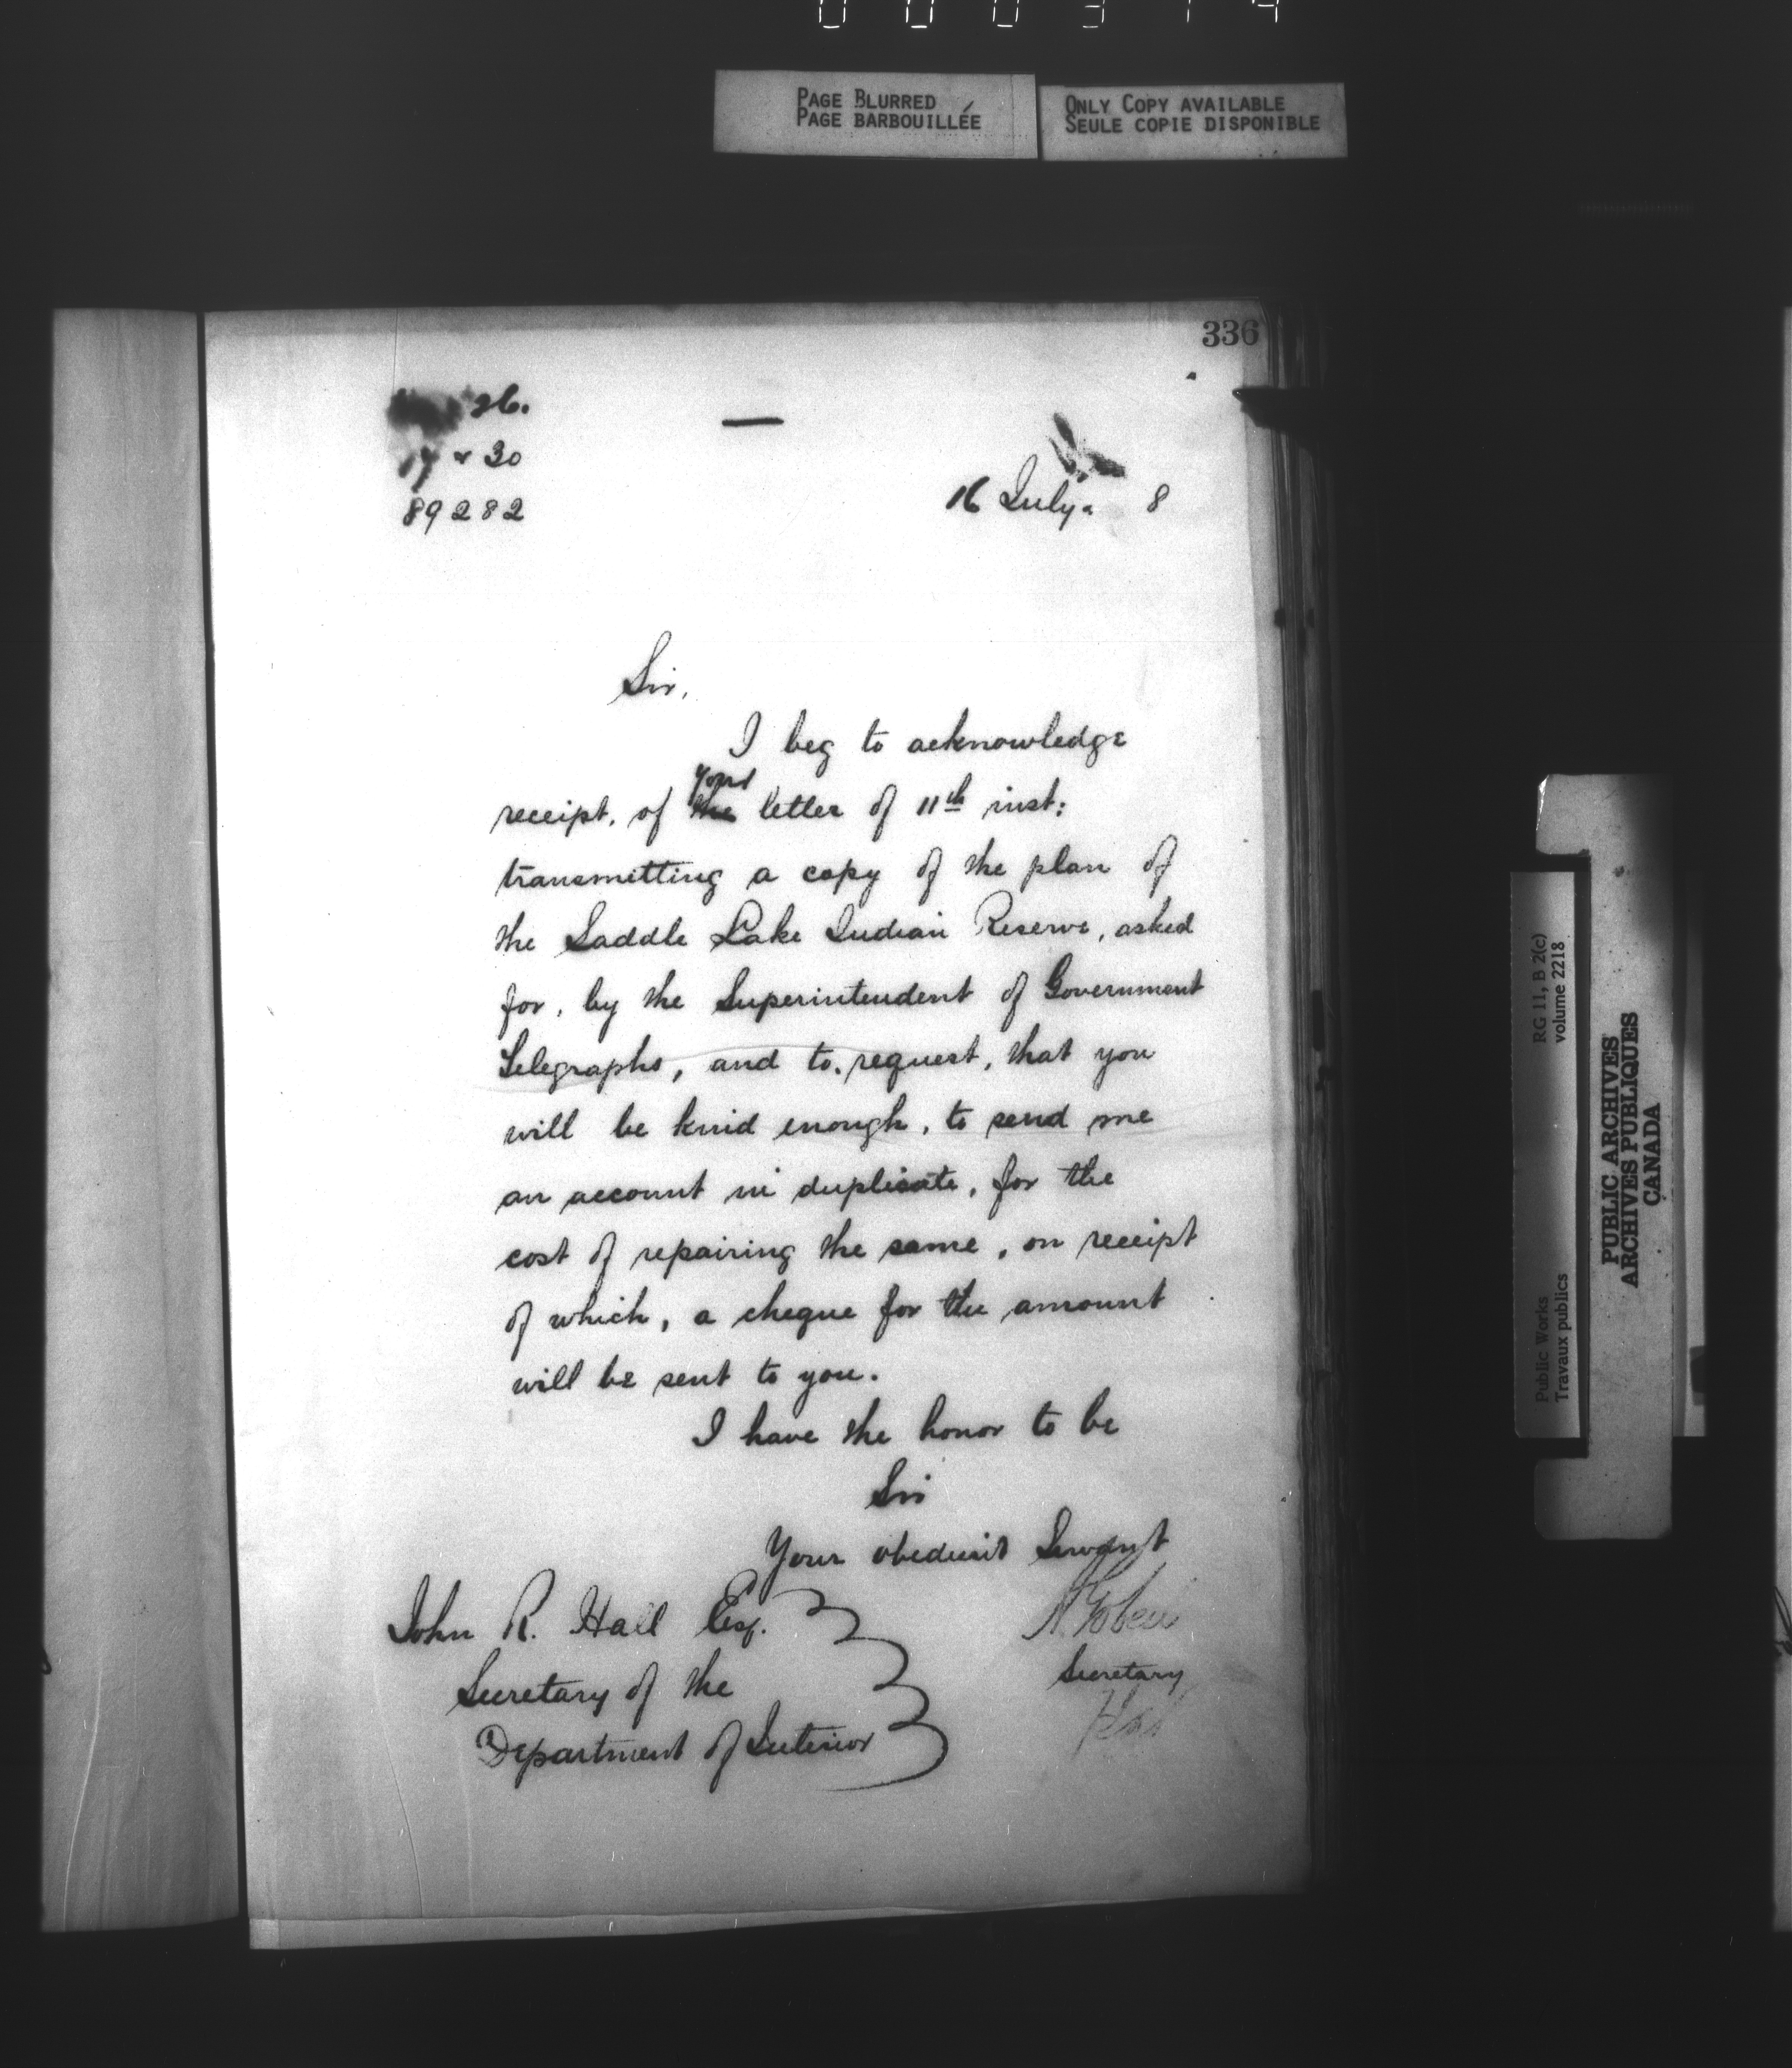 PAGE BLURRED
PAGE BARBOUILLÉE
ONLY COPY AVAILABLE
SEULE COPIE DISPONIBLE
336
26.
17 & 30
89282
16 July. 8
Sir,
I beg to acknowledge
your
receipt, of the letter of 11th inst:
transmitting a copy of the plan of
the Saddle Lake Indian Reserve, asked
for, by the Superintendent of Government
Telegraphs, and to request, that you
will be kind enough, to send me
an account in duplicate, for the
cost of repairing the same, on receipt
of which, a cheque for the amount
will be sent to you.
I have the honor to be
Sir
Your obedient Servant
A. Gobeil
Secretary
John R. Hall Esq.
Secretary of the
Department of Interior
RG 11, B 2(c)
volume 2218
Public Works
Travaux publics
PUBLIC ARCHIVES
ARCHIVES PUBLIQUES
CANADA